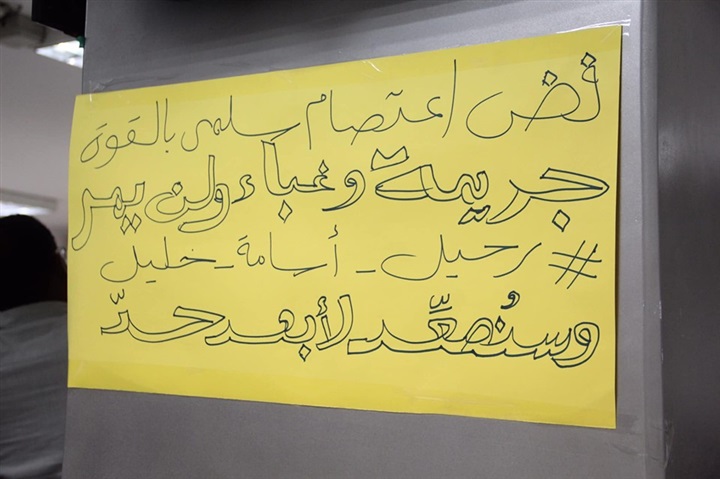 فض اعتصام سلمى بالقوة
جريمة وغباء ولن يمر
# رحيل - أسامة - خليل
وسنُصعِّد لأبعد حدّ